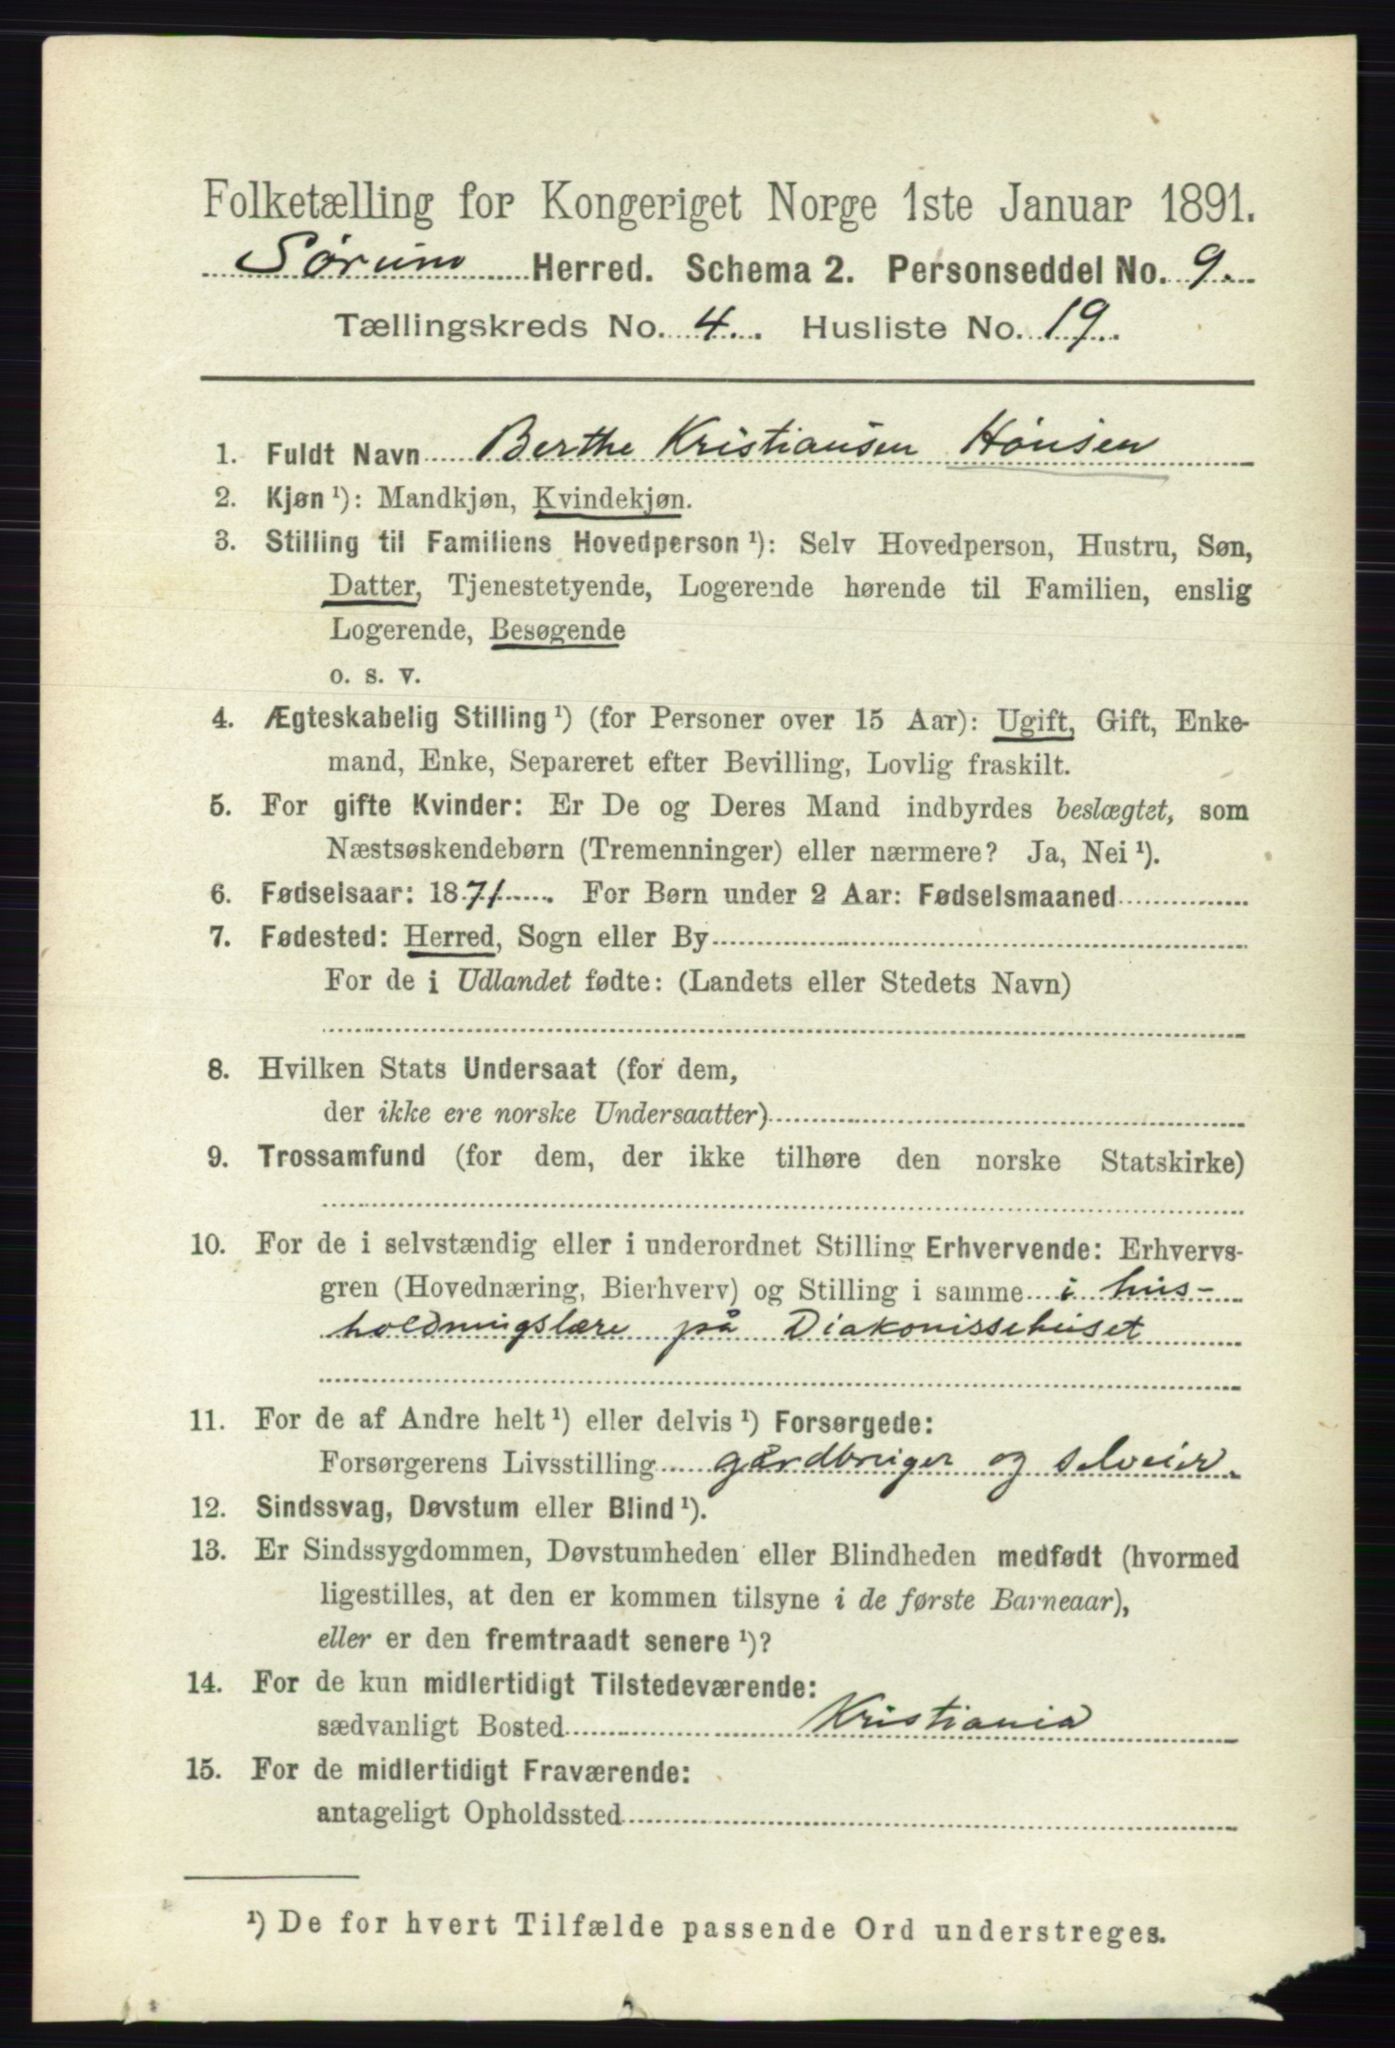 Folketælling for Kongeriget Norge 1ste Januar 1891.
Sørum Herred. Schema 2. Personseddel No. 9.
Tællingskreds No. 4. Husliste No. 19.
1. Fuldt Navn Berthe Kristiansen Hønsen
2. Kjøn ¹): Mandkjøn, Kvindekjøn.
3. Stilling til Familiens Hovedperson ¹): Selv Hovedperson, Hustru, Søn,
Datter, Tjenestetyende, Logerende hørende til Familien, enslig
Logerende, Besøgende
o. s. v.
4. Ægteskabelig Stilling ¹) (for Personer over 15 Aar): Ugift, Gift, Enke-
mand, Enke, Separeret efter Bevilling, Lovlig fraskilt.
5. For gifte Kvinder: Er De og Deres Mand indbyrdes beslægtet, som
Næstsøskendebørn (Tremenninger) eller nærmere? Ja, Nei ¹).
6. Fødselsaar: 1871. For Børn under 2 Aar: Fødselsmaaned
7. Fødested: Herred, Sogn eller By
For de i Udlandet fødte: (Landets eller Stedets Navn)
8. Hvilken Stats Undersaat (for dem,
der ikke ere norske Undersaatter)
9. Trossamfund (for dem, der ikke tilhøre den norske Statskirke)
10. For de i selvstændig eller i underordnet Stilling Erhvervende: Erhvervs-
gren (Hovednæring, Bierhverv) og Stilling i samme i hus-
holdningslære på Diakonissehuset
11. For de af Andre helt ¹) eller delvis ¹) Forsørgede:
Forsørgerens Livsstilling gårdbruger og selveier.
12. Sindssvag, Døvstum eller Blind ¹).
13. Er Sindssygdommen, Døvstumheden eller Blindheden medfødt (hvormed
ligestilles, at den er kommen tilsyne i de første Barneaar),
eller er den fremtraadt senere ¹)?
14. For de kun midlertidigt Tilstedeværende:
sædvanligt Bosted Kristiania
15. For de midlertidigt Fraværende:
antageligt Opholdssted
¹) De for hvert Tilfælde passende Ord understreges.